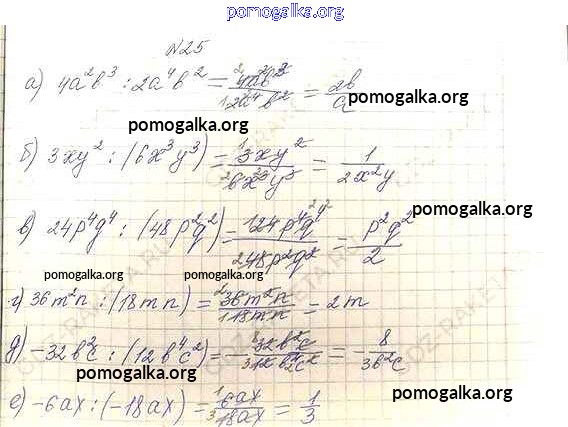 pomogalka.org
№25
а) 4a²b³ : 2a⁴b² = 4a²b³/2a⁴b² = 2b/a
pomogalka.org
pomogalka.org
б) 3xy² : (6x³y³) = 3xy²/6x³y³ = 1/2x²y
pomogalka.org
в) 24p⁴q⁴ : (48p²q²) = 24p⁴q⁴/48p²q² = p²q²/2
pomogalka.org
pomogalka.org
г) 36m²n : (18mn) = 36m²n/18mn = 2m
д) -32b²c : (12b⁴c²) = -32b²c/12b⁴c² = -8/3b²c
pomogalka.org
pomogalka.org
е) -6ax : (-18ax) = 6ax/18ax = 1/3